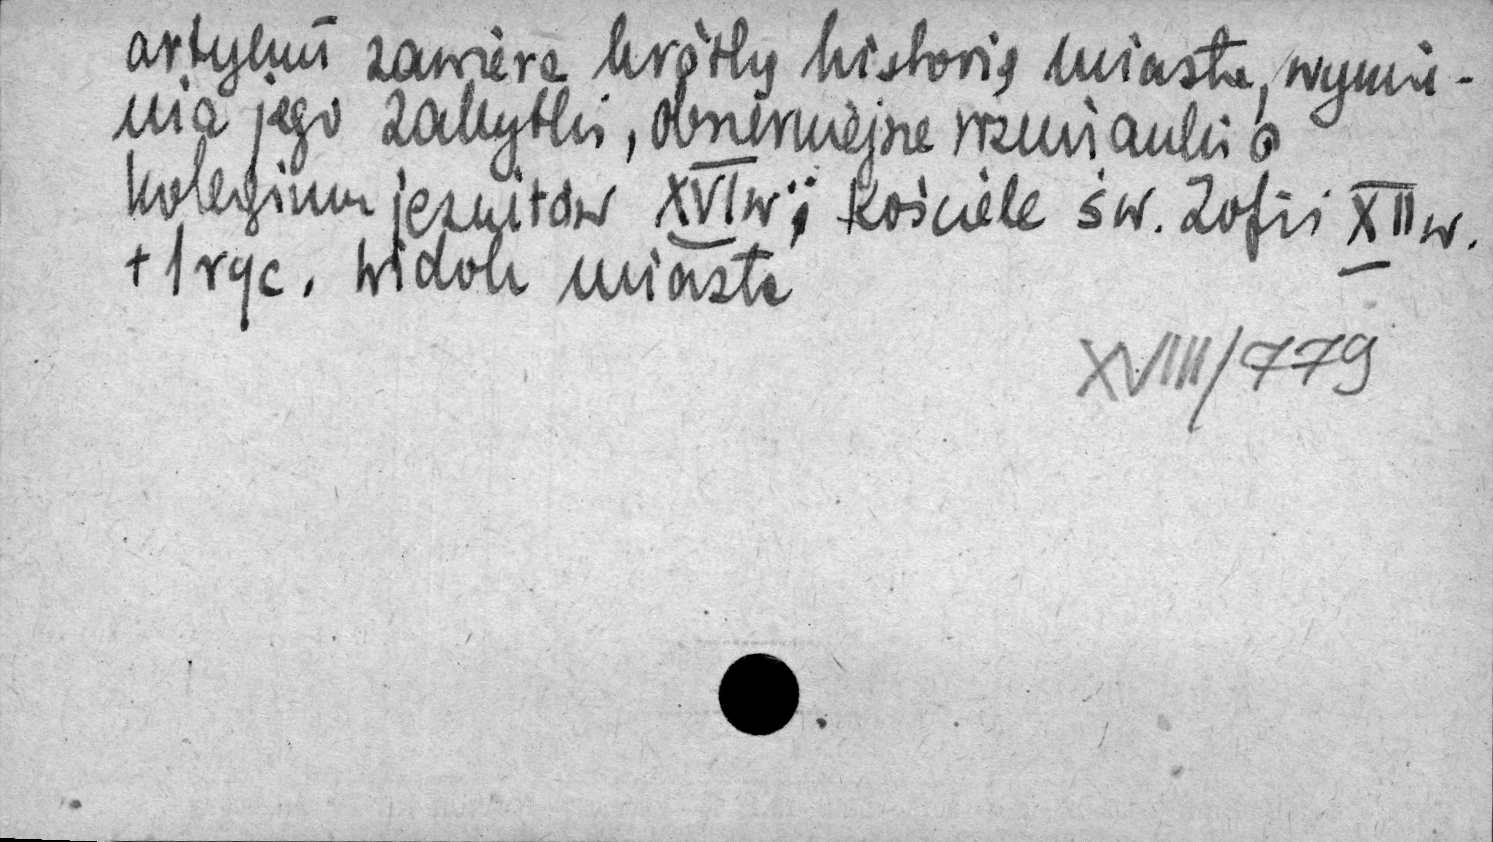 artykuł zawiera krótką historię miasta, wymie-
nia jego zabytki, obszerniejsze wzmianki o
kolegium jezuitów XVI w.; kościele św. Zofii XII w.
+ 1 ryc. widok miasta
XVIII/779